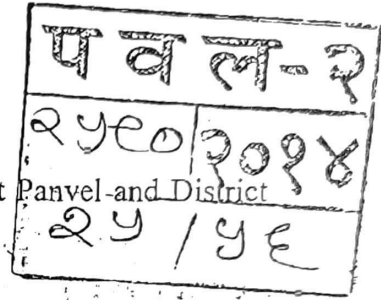 पवल-२
२५९० २०१४
t Panvel-and District
२५ / ५६